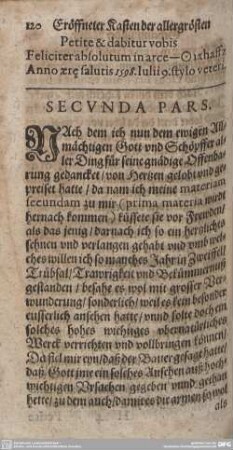 120 Eröffneter Kasten der allergrösten
Petite & dabitur vobis
Feliciter absolutum in arce
Anno salutis 1598. Iulii 9. stylo veteri.
SECVNDA PARS.
NAch dem ich nun dem ewigen All-
mächtigen Gott vnd Schöpffer al-
ler Ding für seine gnädige Offenba-
rung gedancket / von Hertzen gelobt vnd ge-
preiset hatte / da nam ich meine materiam
secundam zu mir (prima materia wurdt
hernach kommen) küssete sie vor Freuden/
als das jenig / darnach ich so ein hertzliches
sehnen vnd verlangen gehabt vnd vmb wel-
ches willen ich so manches Jahr in Zweiffel/
Trübsal / Trawrigkeit vnd Bekümmernuß
gestanden / besahe es wol mit grosser Ver-
wunderung / sonderlich / weil es kein besonder
eusserlich ansehen hatte / vnnd solte doch ein
solches hohes wichtiges vbernatürliches
Werck verrichten vnd vollbringen können/
Da fiel mir eyn / daß der Bauer gesagt hatte/
daß Gott jme ein solches Ansehen auß hoch-
wichtigen Vrsachen gegeben vnnd gethan
hette / zu dem auch / damit es die armen so wol
als